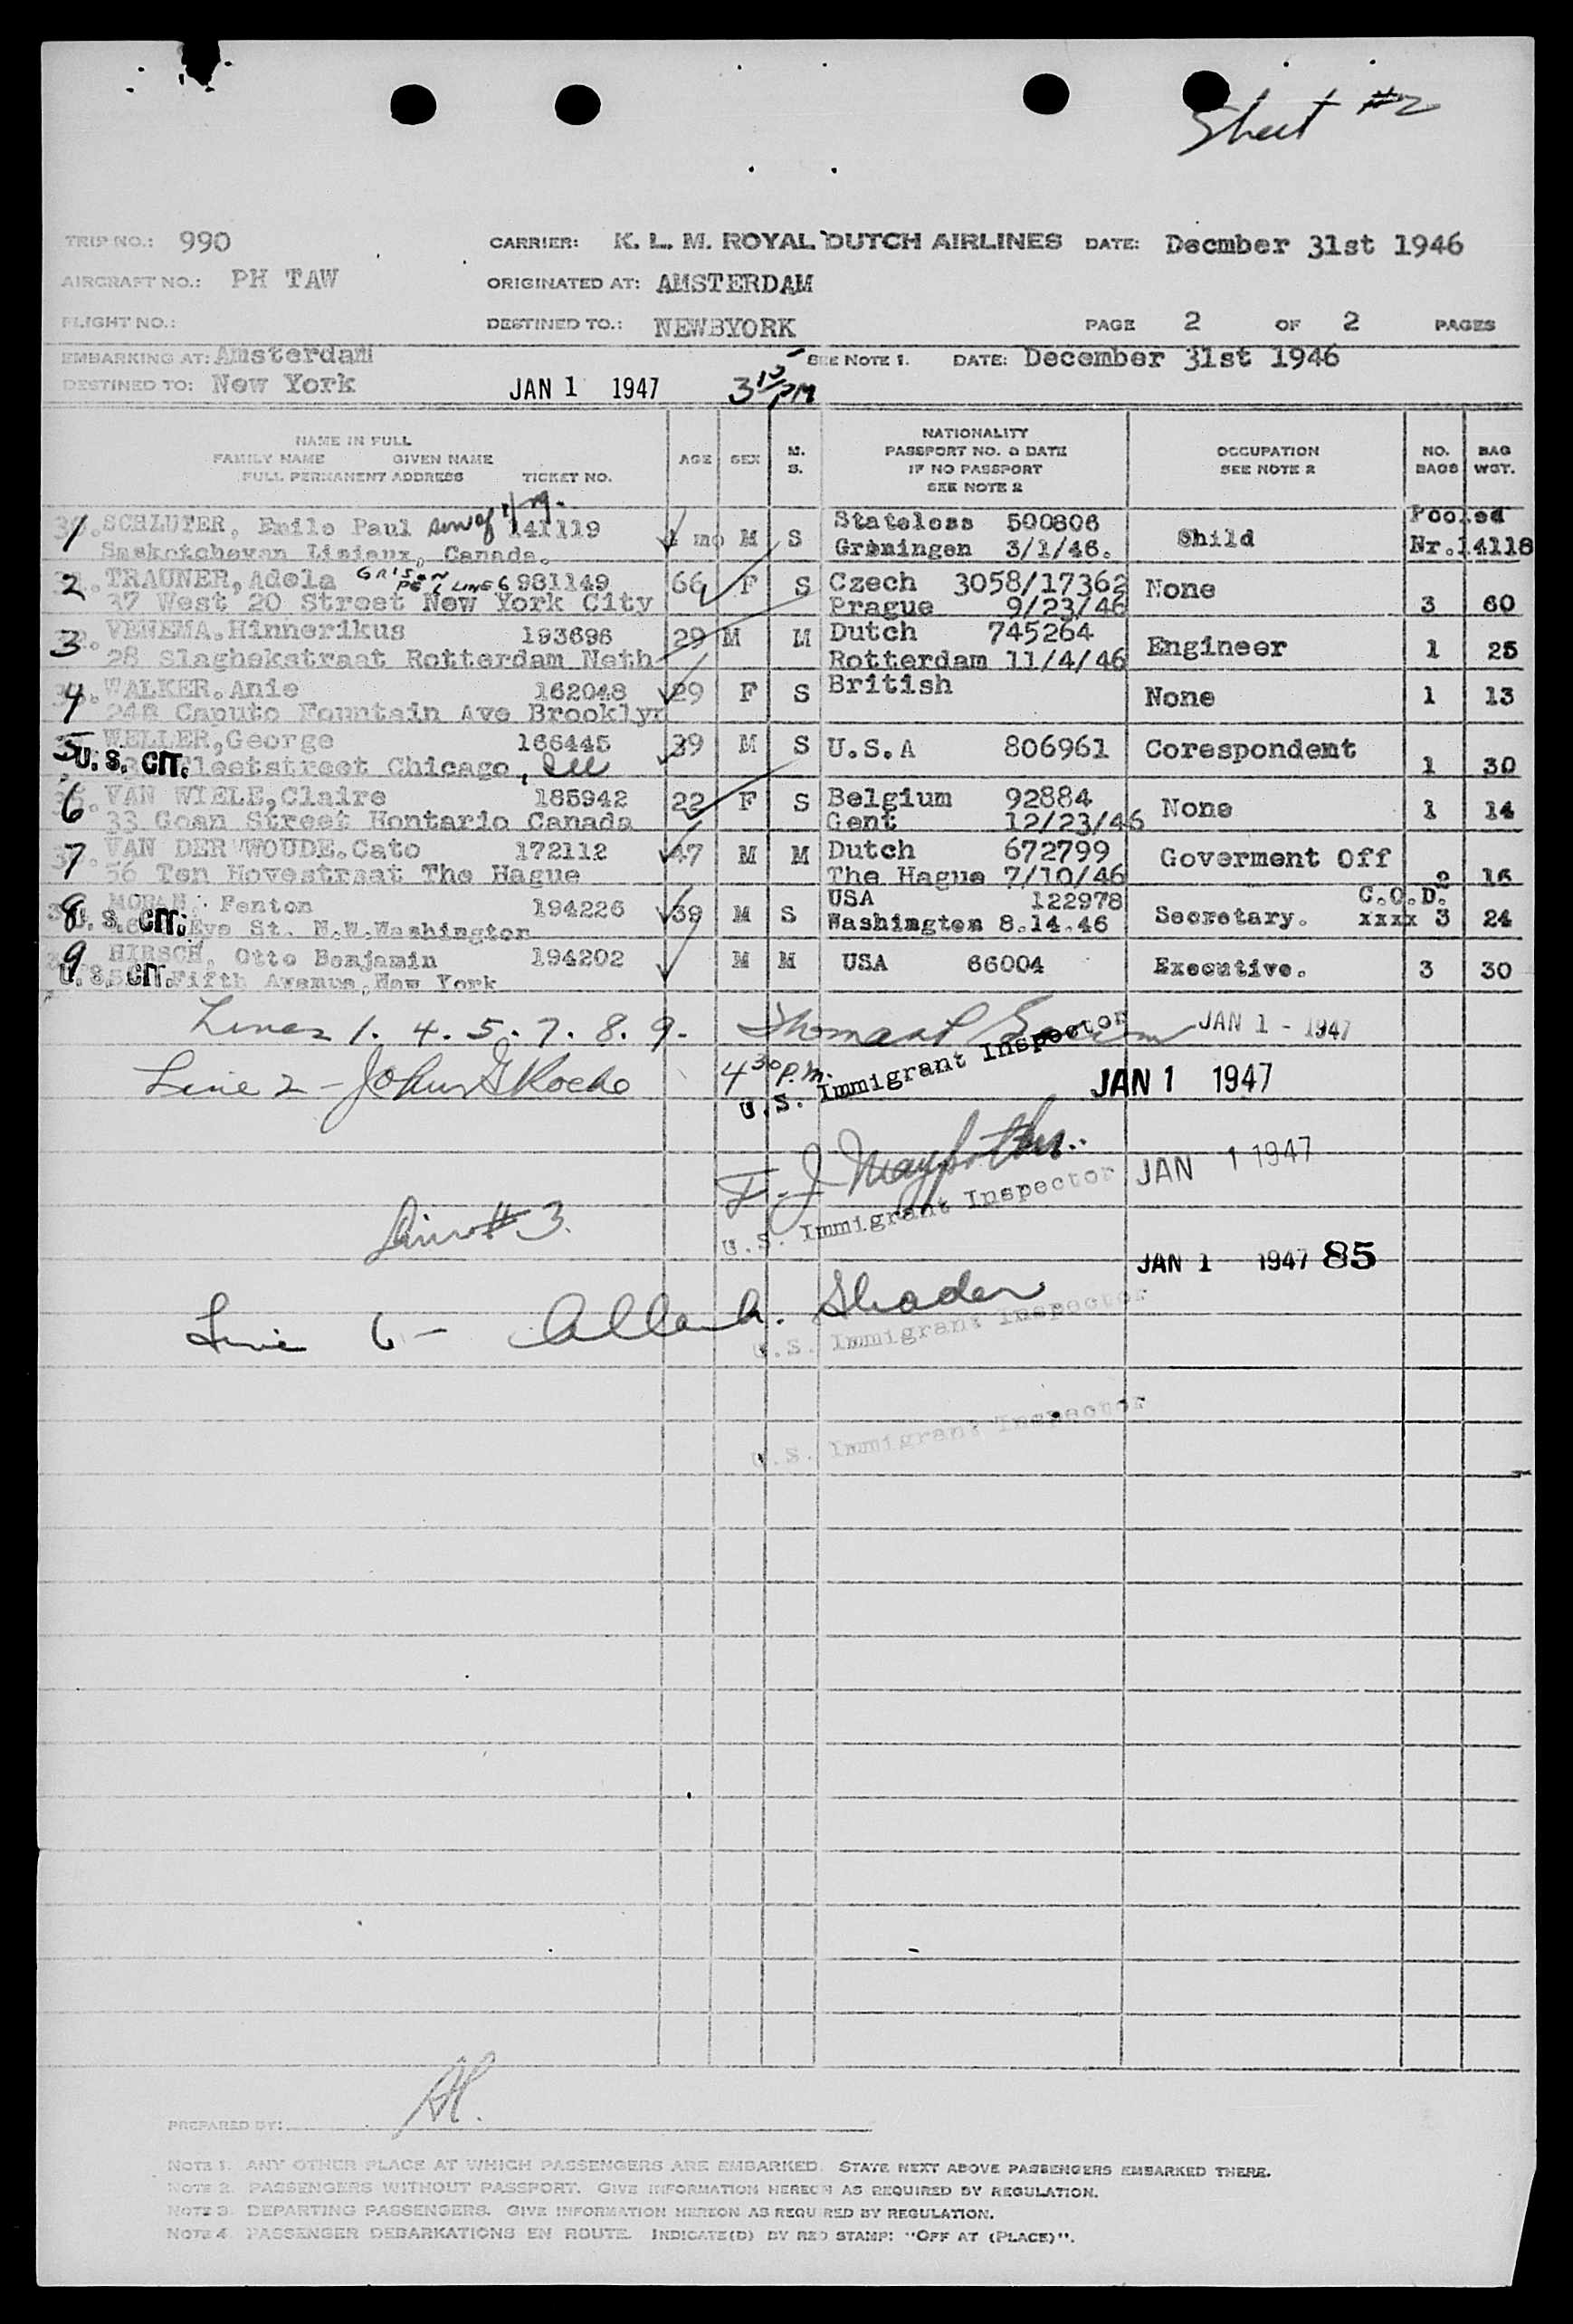 Sheet #2
TRIP NO.: 990 CARRIER: K. L. M. ROYAL DUTCH AIRLINES DATE: Decmber 31st 1946
AIRCRAFT NO.: PH TAW ORIGINATED AT: AMSTERDAM
FLIGHT NO.: DESTINED TO.: NEWBYORK PAGE 2 OF 2 PAGES
EMBARKING AT: Amsterdam SEE NOTE 1. DATE: December 31st 1946
DESTINED TO: New York JAN 1 1947 3 15 PM
NAME IN FULL
FAMILY NAME GIVEN NAME
FULL PERMANENT ADDRESS TICKET NO.
AGE SEX M. S.
NATIONALITY
PASSPORT NO. & DATE
IF NO PASSPORT
SEE NOTE 2
OCCUPATION
SEE NOTE 2
NO. BAGS
BAG WGT.
1 SCHLUTER, Emile Paul son of 141119 mo M S Stateless 500806 Child Pooled
Saskatchewan Lisieux, Canada. Gröningen 3/1/46. Nr.14118
2 TRAUNER, Adela 981149 66 F S Czech 3058/17362 None
37 West 20 Street New York City Prague 9/23/46 3 60
3 VENEMA.Hinnerikus 193696 29 M M Dutch 745264 Engineer 1 25
28 Slaghekstraat Rotterdam Neth Rotterdam 11/4/46
4 WALKER.Anie 162048 29 F S British None 1 13
248 Caputo Fountain Ave Brooklyn
5 WELLER,George 166445 39 M S U.S.A 806961 Corespondent
U. S. CIT. Fleetstreet Chicago, Ill 1 30
6 VAN WIELE,Claire 185942 22 F S Belgium 92884 None 1 14
33 Goan Street Hontario Canada Gent 12/23/46
7 VAN DER WOUDE.Cato 172112 47 M M Dutch 672799 Goverment Off
56 Ten Hovestraat The Hague The Hague 7/10/46 2 16
8 MORAN, Fenton 194226 39 M S USA 122978 Secretary. C.O.D.
U. S. CIT. Eye St. N.W.Washington Washington 8.14.46 xxxx 3 24
9 HIRSCH, Otto Benjamin 194202 M M USA 66004 Executive. 3 30
U. S. CIT. Fifth Avenue, New York
Lines 1. 4. 5. 7. 8. 9. JAN 1 - 1947
U.S. Immigrant Inspector
Line 2 - John G Roche 4 30 p.m. JAN 1 1947
JAN 1 1947
U.S. Immigrant Inspector
Line # 3.
JAN 1 1947 85
Line 6 - Allen A. Shader
U.S. Immigrant Inspector
U.S. Immigrant Inspector
PREPARED BY:
NOTE 1. ANY OTHER PLACE AT WHICH PASSENGERS ARE EMBARKED. STATE NEXT ABOVE PASSENGERS EMBARKED THERE.
NOTE 2. PASSENGERS WITHOUT PASSPORT. GIVE INFORMATION HEREON AS REQUIRED BY REGULATION.
NOTE 3. DEPARTING PASSENGERS. GIVE INFORMATION HEREON AS REQUIRED BY REGULATION.
NOTE 4. PASSENGER DEBARKATIONS EN ROUTE. INDICATE(D) BY RED STAMP: "OFF AT (PLACE)".